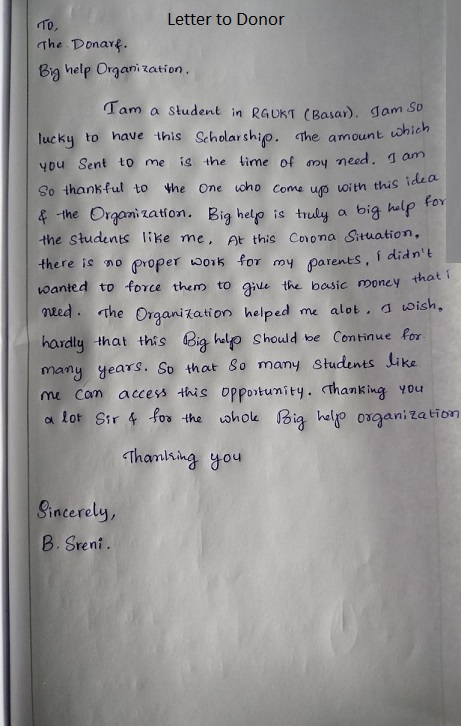 Letter to Donor
To,
The Donars.
Big help Organization.
I am a student in RGUKT (Basar). I am So
lucky to have this Scholarship. The amount which
you Sent to me is the time of my need. I am
So thankful to the one who come up with this idea
& the Organization. Big help is truly a big help for
the students like me. At this Corona Situation,
there is no proper work for my parents, I didn't
wanted to force them to give the basic money that i
need. The Organization helped me alot. I wish,
hardly that this Big help Should be Continue for
many years. So that So many Students like
me can access this opportunity. Thanking you
a lot Sir & for the whole Big help organization
Thanking you
Sincerely,
B. Sreni.